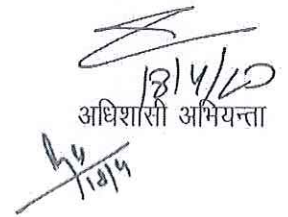 18/4/20
अधिशासी अभियन्ता
18/4